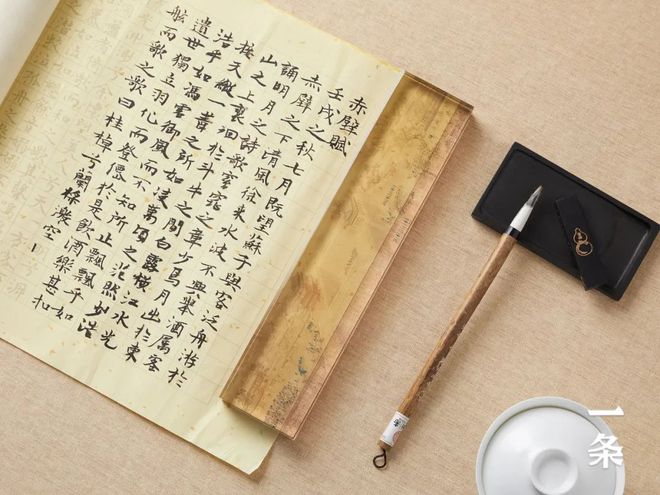 赤壁賦
壬戌之秋七月既望蘇子與客泛舟游於
赤壁之下清風徐來水波不興舉酒屬客
誦明月之詩歌窈窕之章少焉月出於東
山之上裴徊於斗牛之間白露橫江水光
接天縱一葦之所如凌萬頃之茫然浩
浩乎如馮虛御風而不知所止飄飄乎如
遺世獨立羽化而登僊於是飲酒樂甚扣
舷而歌之歌曰桂棹兮蘭槳擊空
一条